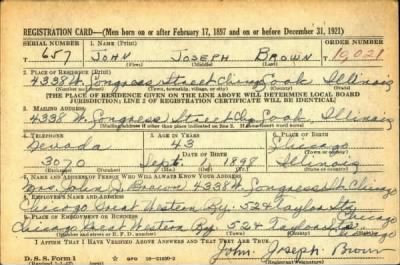 REGISTRATION CARD—(Men born on or after February 17, 1897 and on or before December 31, 1921)
SERIAL NUMBER 1. NAME (Print) ORDER NUMBER
T 657 JOHN JOSEPH BROWN T 9021
(First) (Middle) (Last)
2. PLACE OF RESIDENCE (Print)
4338 W. Congress Street Chicago Cook Illinois
(Number and street) (Town, township, village, or city) (County) (State)
[THE PLACE OF RESIDENCE GIVEN ON THE LINE ABOVE WILL DETERMINE LOCAL BOARD
JURISDICTION; LINE 2 OF REGISTRATION CERTIFICATE WILL BE IDENTICAL]
3. MAILING ADDRESS
4338 W. Congress Street Chg Cook, Illinois
[Mailing address if other than place indicated on line 2. If same insert word same]
4. TELEPHONE 5. AGE IN YEARS 6. PLACE OF BIRTH
Nevada 43 Chicago
DATE OF BIRTH
3070 Sept. 1898 Illinois
7. NAME AND ADDRESS OF PERSON WHO WILL ALWAYS KNOW YOUR ADDRESS
Mrs. John J. Brown 4338 W. Congress St. Chicago
8. EMPLOYER'S NAME AND ADDRESS
Chicago Great Western Ry. 524 Taylor St. Chicago
9. PLACE OF EMPLOYMENT OR BUSINESS
Chicago Great Western Ry. 524 Taylor St. Chicago
I AFFIRM THAT I HAVE VERIFIED ABOVE ANSWERS AND THAT THEY ARE TRUE.
D. S. S. Form 1 GPO 16—21630-2 John Joseph Brown